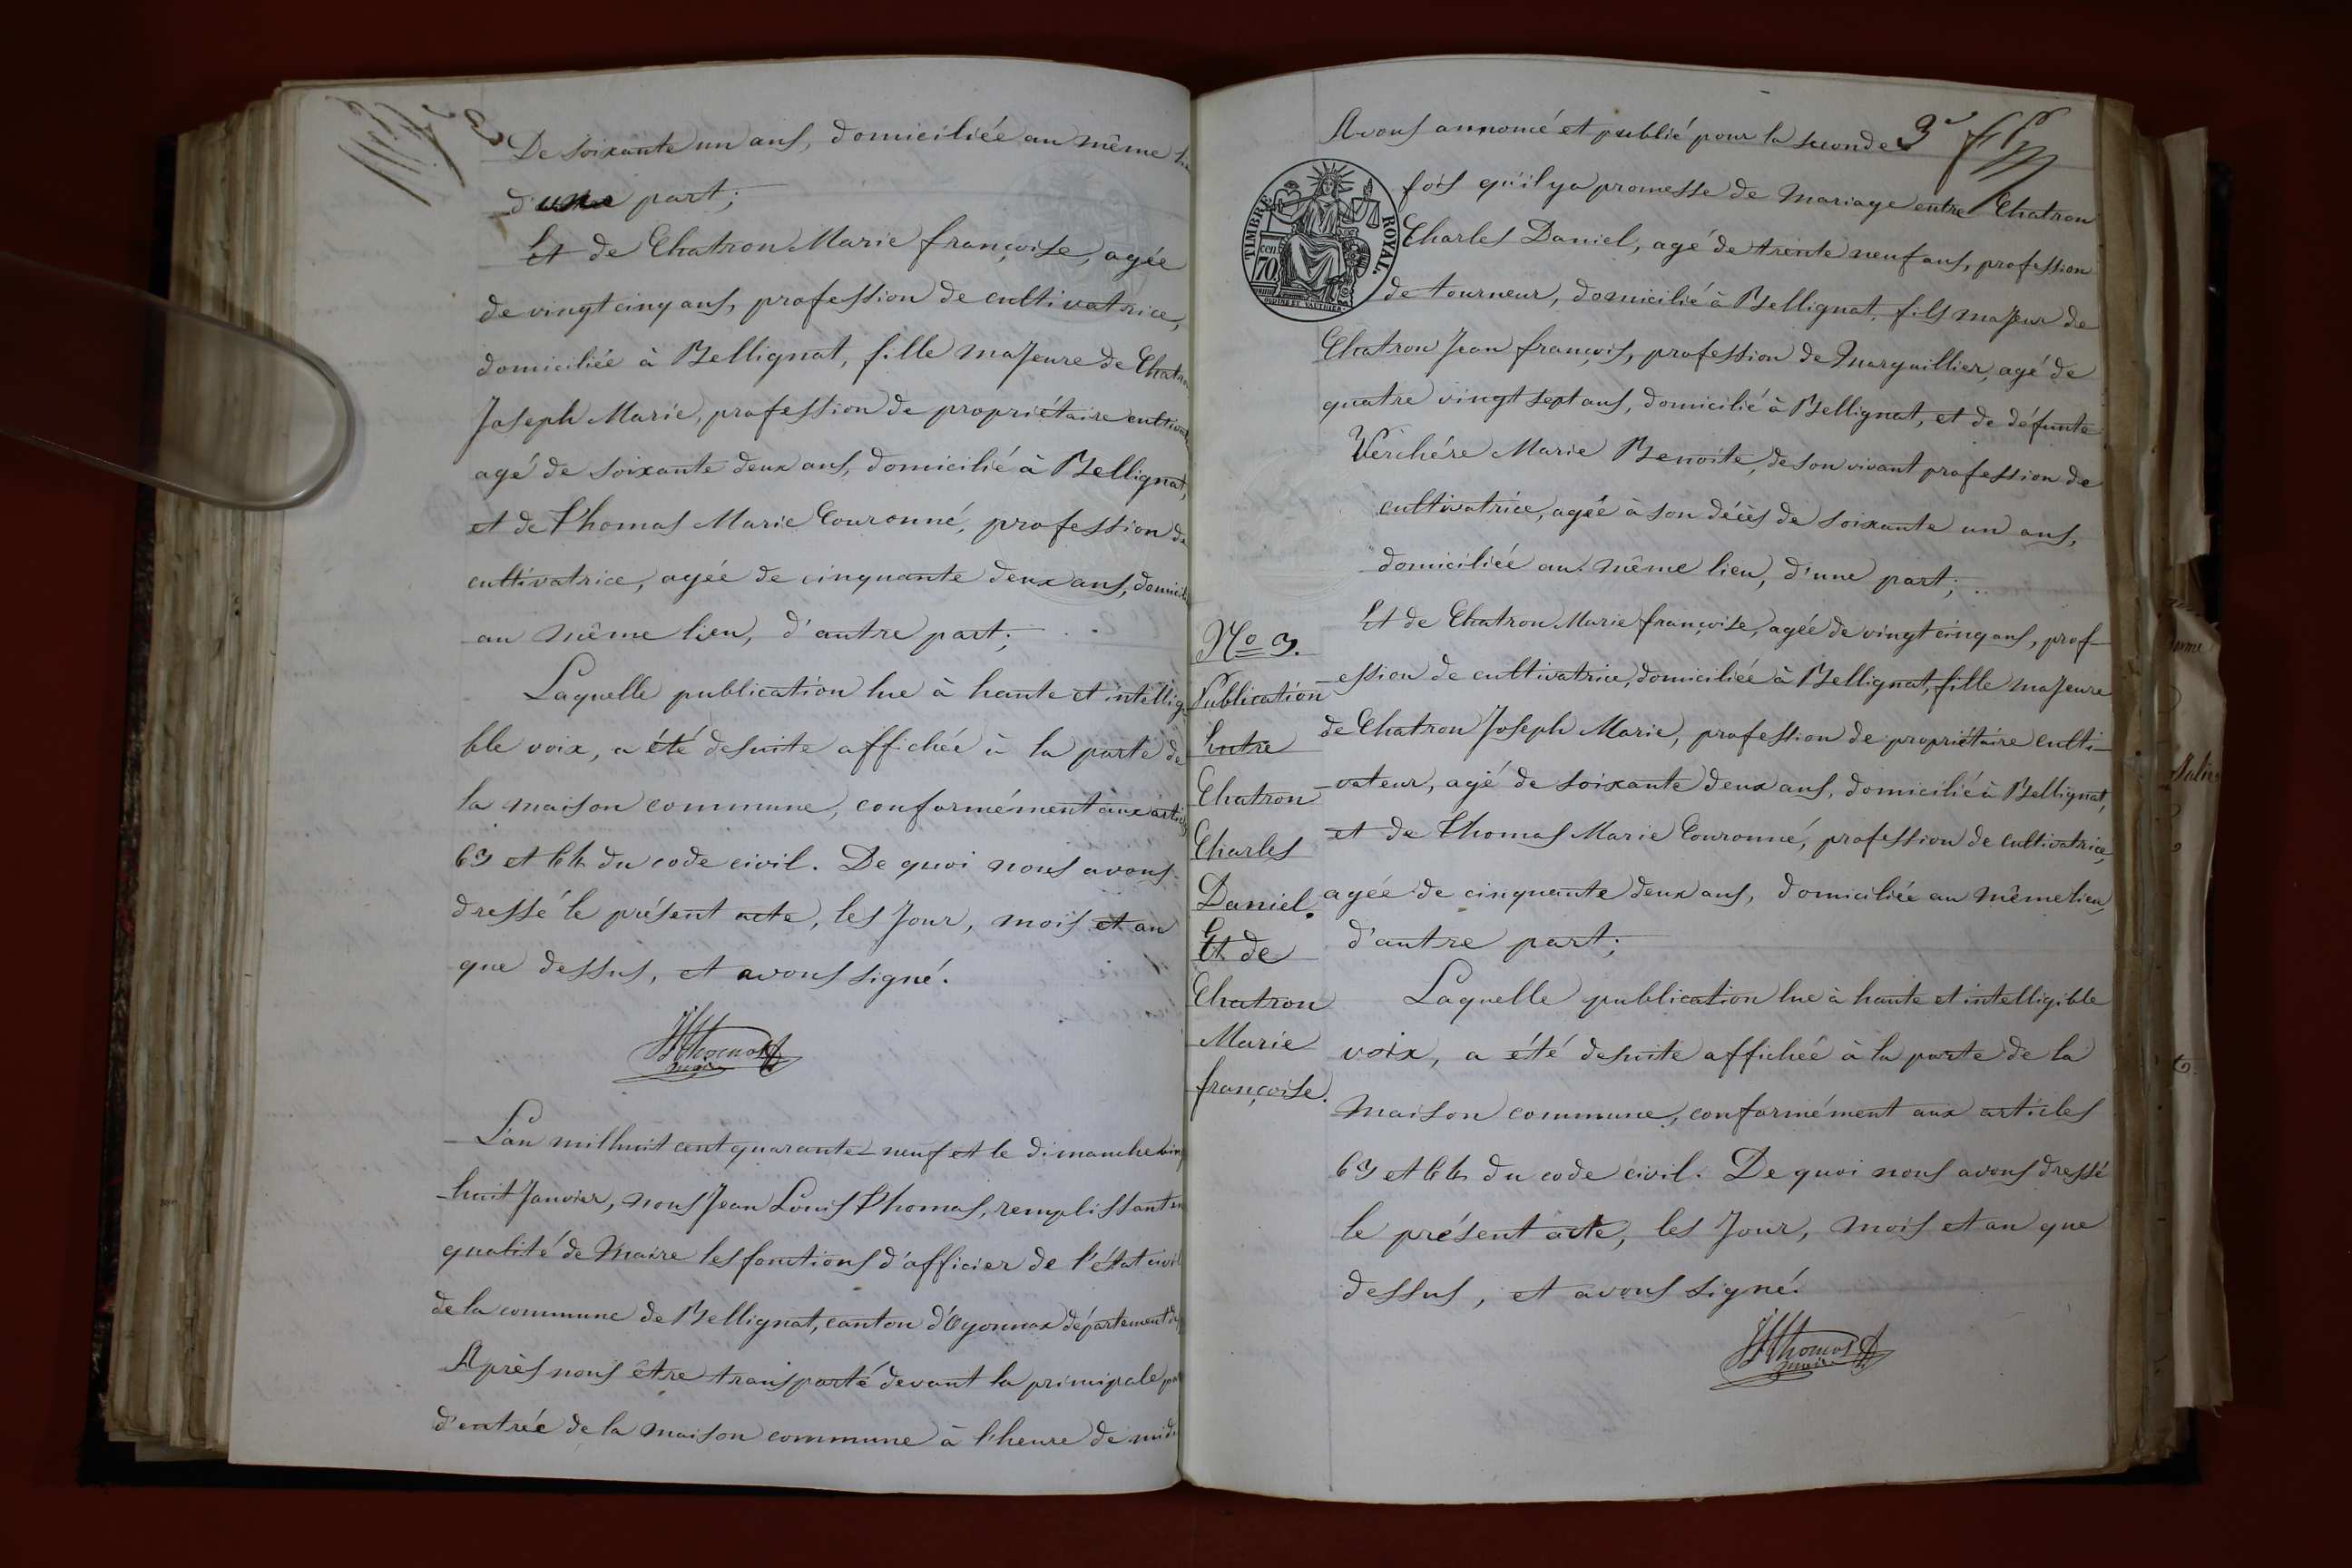 De soixante un ans, domiciliée au même
d'une part;
Et de Chatron Marie françoise, agée
de vingt cinq ans, profession de cultivatrice,
domiciliée à Bellignat, fille maJeure de Chatron
Joseph Marie, profession de propriétaire
agé de soixante deux ans, domicilié à Bellignat,
et de Thomas Marie Couronné, profession de
cultivatrice, agée de cinquante deux ans,
au même lieu, d'autre part;
Laquelle publication lue à haute et intelligi
ble voix, a été desuite affichée à la porte de
la maison commune, conformément aux articles
63 et 64 du code civil. De quoi nous avons
dressé le présent acte, les Jour, mois et an
que dessus, et avons signé.
JL Thomas
maire
L'an mil huit cent quarante neuf et le dimanche
huit Janvier, nous Jean Louis Thomas, remplissant en
qualité de Maire les fonctions d'officier de l'état civil
de la commune de Bellignat, canton d'Oyonnax département
Après nous être transporté devant la principale
d'entrée de la maison commune à l'heure de midi
3e
Avons annoncé et publié pour la seconde
fois qu'il y a promesse de Mariage entre Chatron
TIMBRE ROYAL.
70
Charles Daniel, agé de trente neuf ans, profession
de tourneur, domicilié à Bellignat, fils maJeur de
Chatron Jean françois, profession de Marguillier, agé de
quatre vingt sept ans, domicilié à Bellignat, et de défunte
Verchére Marie Benoite, de son vivant profession de
cultivatrice, agée à son décès de soixante un ans,
domiciliée au même lieu, d'une part;
Et de Chatron Marie françoise, agée de vingt cinq ans, prof
ession de cultivatrice, domiciliée à Bellignat, fille maJeure
de Chatron Joseph Marie, profession de propriétaire culti-
-vateur, agé de soixante deux ans, domicilié à Bellignat,
et de Thomas Marie Couronné, profession de cultivatrice,
agée de cinquante deux ans, domiciliée au même lieu,
d'autre part;
Laquelle publication lue à haute et intelligible
voix, a été desuite affichée à la porte de la
maison commune, conformément aux articles
63 et 64 du code civil. De quoi nous avons dressé
le présent acte, les Jour, mois et an que
dessus, et avons signé.
JL Thomas
maire
No 3.
Publication
Entre
Chatron
Charles
Daniel.
Et de
Chatron
Marie
françoise.